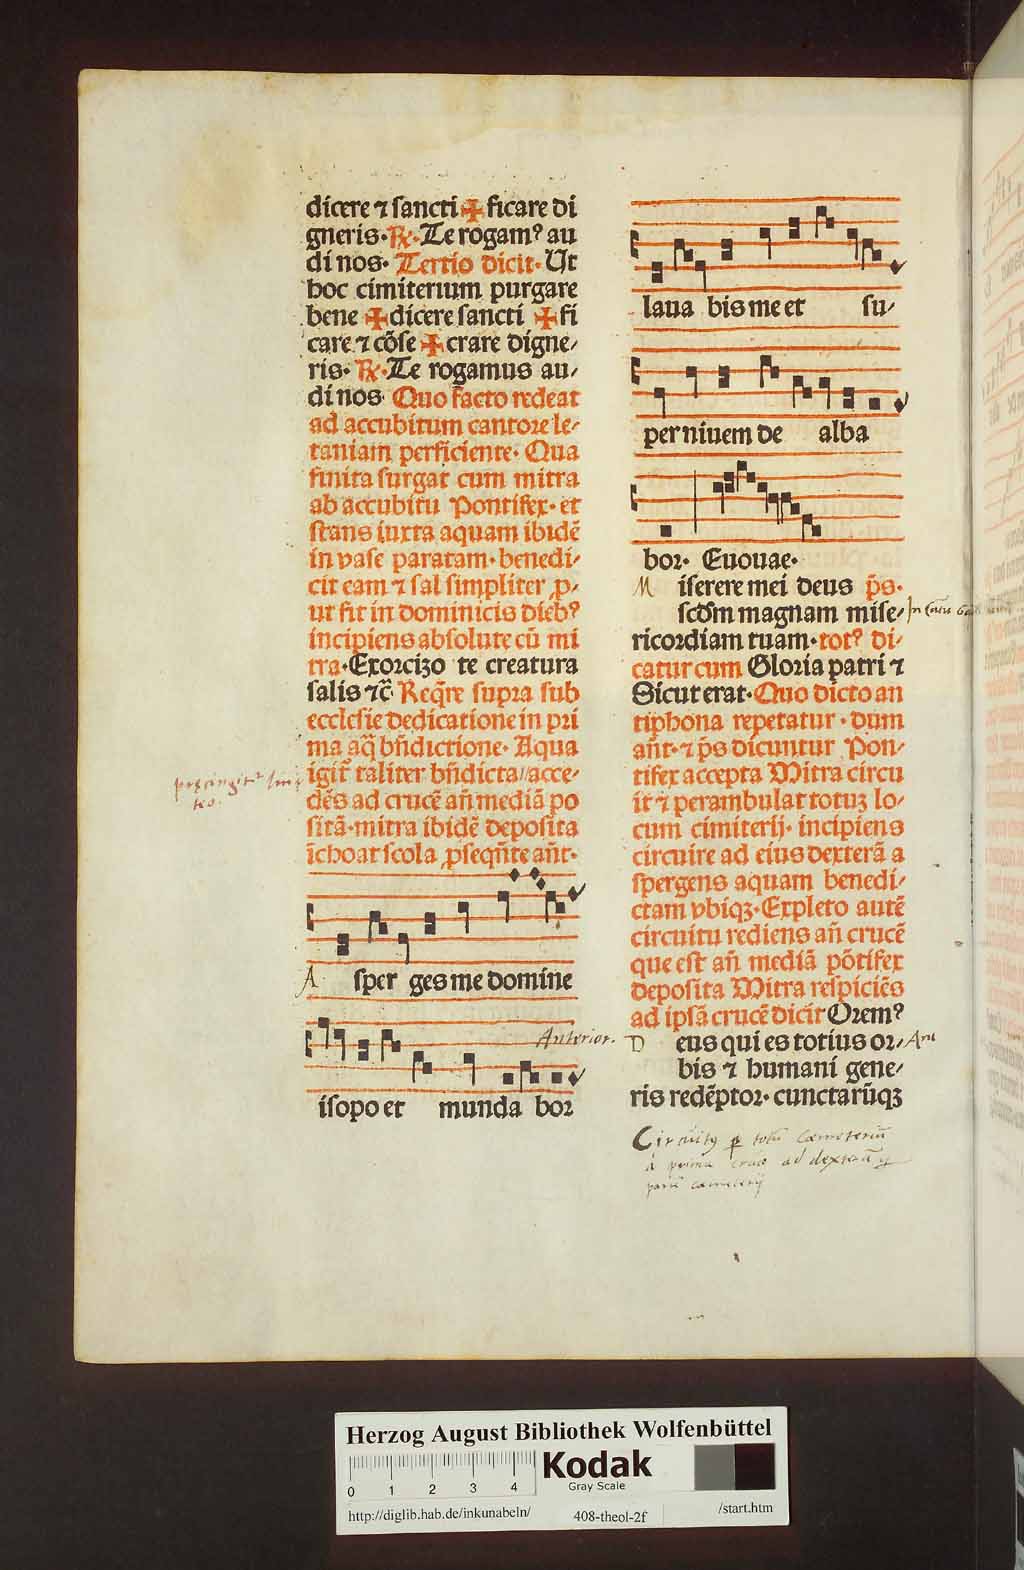 dicere ⁊ sancti ✠ ficare di
gneris. ℟. Te rogamꝰ au
di nos. Tertio dicit. Ut
hoc cimiterium purgare
bene ✠ dicere sancti ✠ fi
care ⁊ cōse ✠ crare digne⸗
ris. ℟. Te rogamus au⸗
di nos Quo facto redeat
ad accubitum cantore le⸗
taniam perficiente. Qua
finita surgat cum mitra
ab accubitu Pontifex. et
stans iuxta aquam ibidē
in vase paratam. benedi⸗
cit eam ⁊ sal simpliter ꝓ⸗
ut fit in dominicis diebꝰ
incipiens absolute cū mi
tra. Exorcizo te creatura
salis ⁊c̄ Req̄re supra sub
ecclesie dedicatione in pri
ma aq̄ bn̄dictione. Aqua
igit᷑ taliter bn̄dicta // acce⸗
dēs ad crucē an̄ mediā po
sitā. mitra ibidē deposita
īchoat scola ꝓseqn̄te an̄t.
A sper ges me domine
isopo et munda bor
præcingit᷑ lin
teo.
Anterior.
laua bis me et su⸗
per niuem de alba
bor. Euouae.
M iserere mei deus p̄s.
scd̄m magnam mise⸗
ricordiam tuam. totꝰ di⸗
catur cum Gloria patri ⁊
Sicut erat. Quo dicto an
tiphona repetatur. dum
an̄t. ⁊ p̄s dicuntur Pon⸗
tifex accepta Mitra circu
it ⁊ perambulat totuꝫ lo⸗
cum cimiterij. incipiens
circuire ad eius dexterā a
spergens aquam benedi⸗
ctam vbiqꝫ. Expleto autē
circuitu rediens an̄ crucē
que est an̄ mediā pōtifex
deposita Mitra respiciēs
ad ipsā crucē dicit Oremꝰ
D eus qui es totius or⸗
bis ⁊ humani gene⸗
ris redēptor. cunctarūqꝫ
Circuitꝰ ꝑ totū cœmeteriū
à prima cruce ad dexterā
partē cœmeterij
Herzog August Bibliothek Wolfenbüttel
0 1 2 3 4
Kodak
Gray Scale
http://diglib.hab.de/inkunabeln/ 408-theol-2f /start.htm